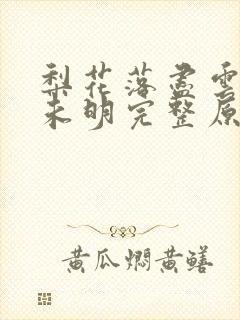 梨花落盡雲
未明完整原
黄瓜焖黄鳝